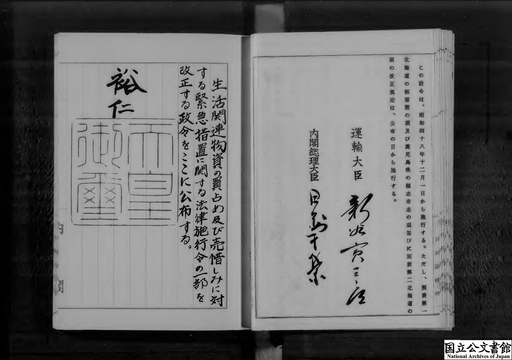 この政令は、昭和四十八年十二月一日から施行する。ただし、別表第一
北海道の
の改正規定は、公布の日から施行する。
運輸大臣
新谷寅三郎
内閣総理大臣
田中角榮
生活関連物資の買占め及び売惜しみに対
する緊急措置に関する法律施行令の一部を
改正する政令をここに公布する。
裕仁
天皇
御璽
国立公文書館
National Archives of Japan